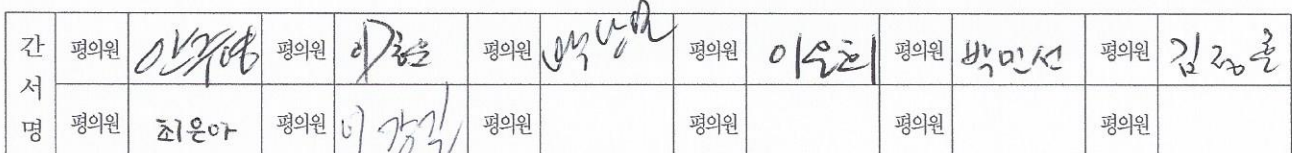 간 평의원 안주영 평의원 이 평의원 박상민 평의원 이운희 평의원 박민선 평의원 김정훈
서
명 평의원 최은아 평의원 이강길 평의원 평의원 평의원 평의원